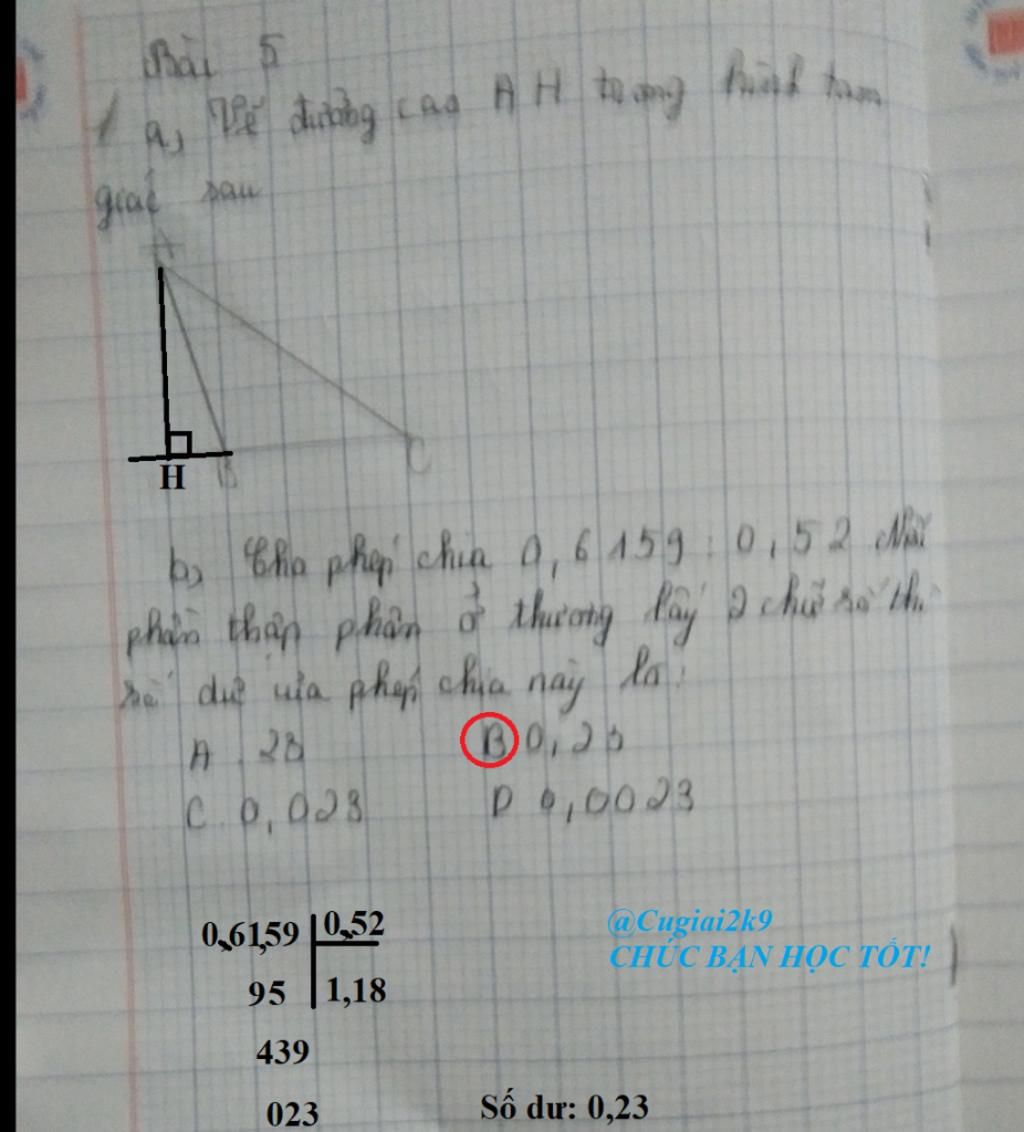 Bài 5
a, Vẽ đường cao AH trong hình tam
giác sau
A
H
B
C
b, Cho phép chia 0,6159 : 0,52 Nếu
phần thập phân ở thương lấy 2 chữ số thì
số dư của phép chia này là:
A. 23 B 0,23
C. 0,023 D 0,0023
0,61,59 0,52
95 1,18
439
023
@Cugiai2k9
CHÚC BẠN HỌC TỐT!
Số dư: 0,23